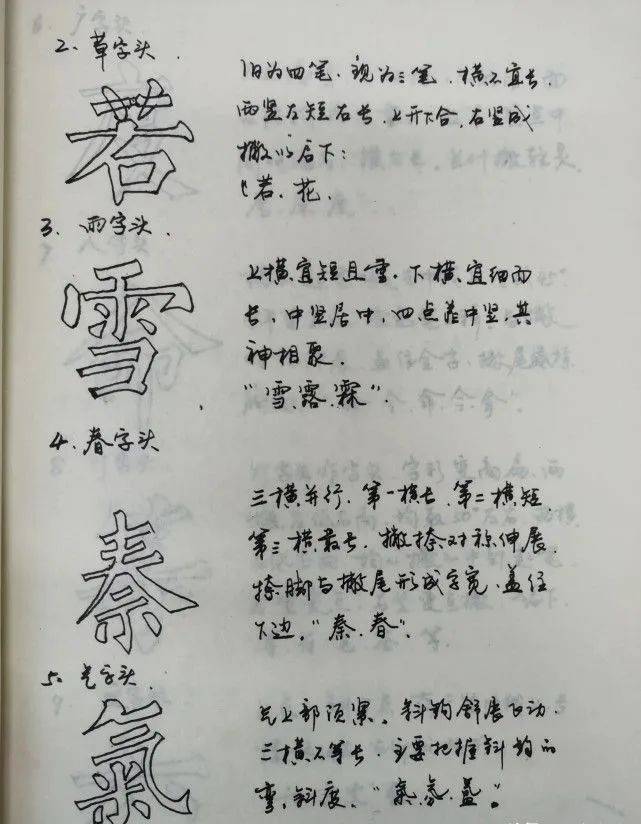 2、草字头.
若
旧为四笔、现为三笔、横不宜长,
两竖左短右长,上开下合,右竖成
撇
若、花,
3、雨字头.
雪
上横宜短且重、下横宜细而
长,中竖居中,四点 中竖,其
神相聚.
"雪、露、霖".
4、春字头
秦
三横并行、第一横长、第二横短,
第三横最长,撇捺对称伸展,
捺脚与撇尾形成字宽、盖住
下边,"秦、春".
5、气字头,
氣
上部顶 ,斜钩舒展飞动.
三横不等长,主要把握斜钩的
弯、斜度、"氣、氛、